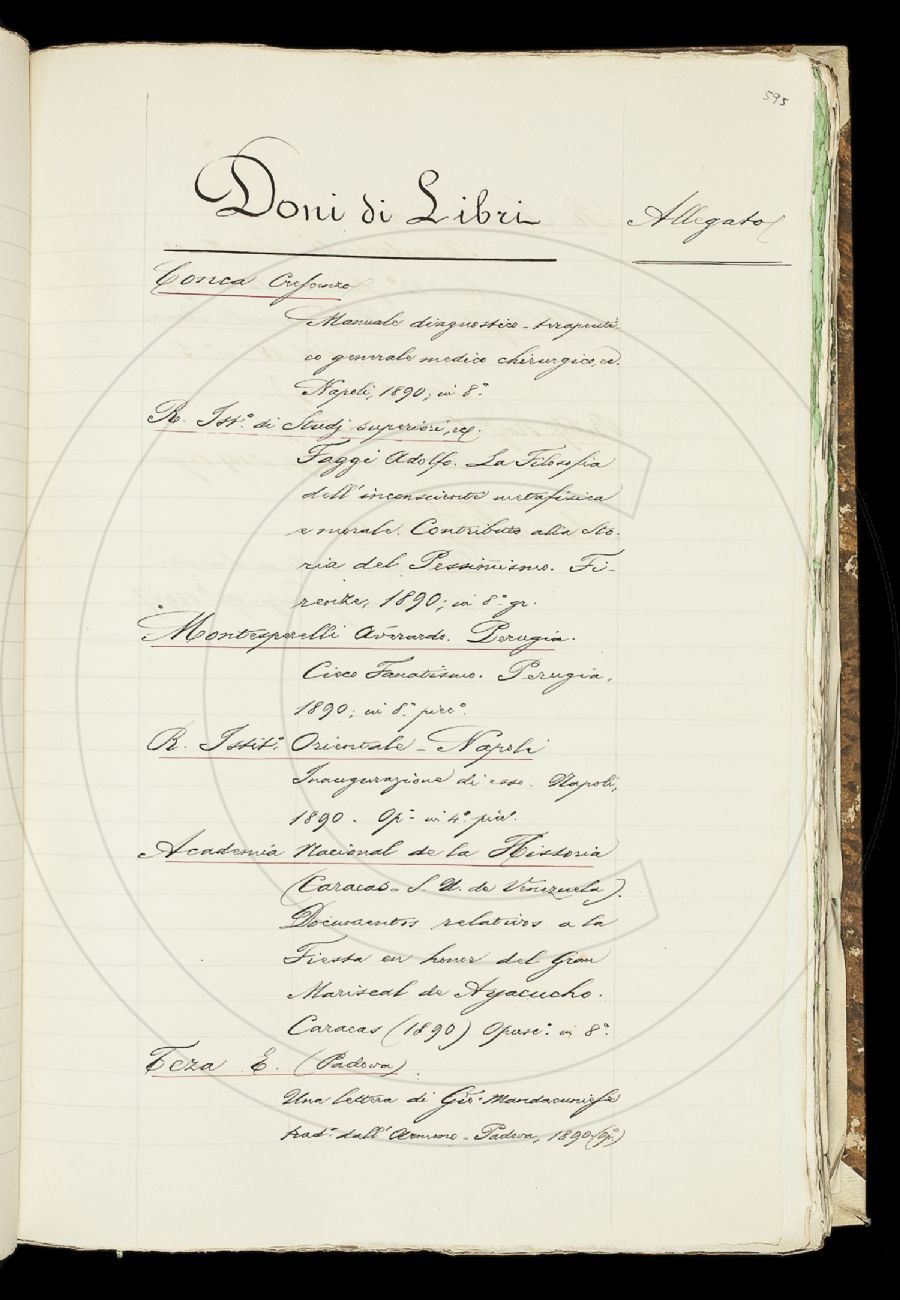 595
Doni di Libri
Allegato
Conca Crescenzo
Manuale diagnostico-terapeuti
co generale medico chirurgico, ec.
Napoli, 1890; in 8.°
R. Ist.° di Studj superiori, ec.
Faggi Adolfo. La Filosofia
dell'inconsciente metafisica
e morale. Contributo alla Sto-
ria del Pessimismo. Fi-
renze, 1890; in 8.° gr.
Montesperelli Averardo. Perugia.
Cieco Fanatismo. Perugia,
1890; in 8.° picc.°
R. Istit.° Orientale - Napoli
Inaugurazione di esso. Napoli,
1890. Op.° in 4.° picc.°
Academia Nacional de la Historia
(Caracas - S. U. de Venezuela).
Documentos relativos a la
Fiesta en honor del Gran
Mariscal de Ayacucho.
Caracas (1890) Opusc.° in 8.°
Teza E. (Padova).
Una lettera di Gio:
trad.° dall'Armeno. Padova, 1890 (Op.°)